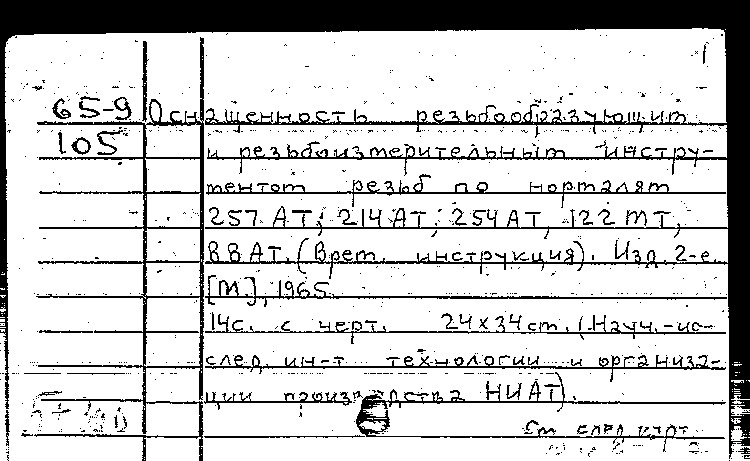 1
65-9 Оснащенность резьбообразующим
105 и резьбоизмерительным инстру-
ментом резьб по нормалям
257 АТ, 214 АТ, 254 АТ, 122 МТ,
88 АТ. (Врем. инструкция). Изд. 2-е.
[М], 1965.
14с. с черт. 24х34см. (Науч.-ис-
след. ин-т технологии и организа-
ции производства НИАТ).
См. след. карт.